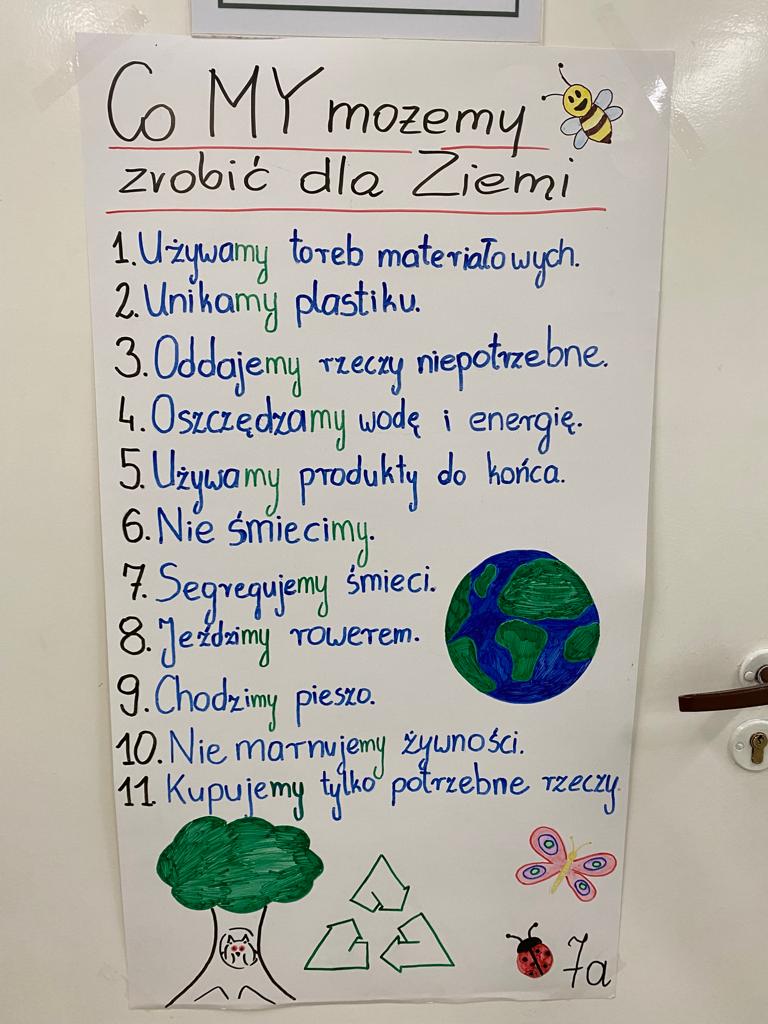 Co MY możemy
zrobić dla Ziemi
1. Używamy toreb materiałowych.
2. Unikamy plastiku.
3. Oddajemy rzeczy niepotrzebne.
4. Oszczędzamy wodę i energię.
5. Używamy produkty do końca.
6. Nie śmiecimy.
7. Segregujemy śmieci.
8. Jeździmy rowerem.
9. Chodzimy pieszo.
10. Nie marnujemy żywności.
11. Kupujemy tylko potrzebne rzeczy.
7a